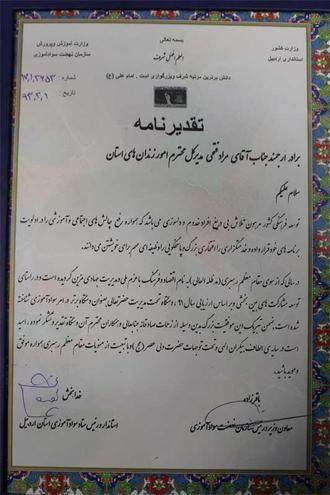 بسمه تعالی
وزارت کشور
استانداری اردبیل
العلم افضل شرف
وزارت آموزش وپرورش
سازمان نهضت سوادآموزی
دانش برترین مرتبه شرف وبزرگواری است . امام علی (ع)
شماره :
تاریخ : ۹۳,۲,۱
تقدیرنامه
برادر ارجمند جناب آقای مراد فتحی مدیرکل محترم امور زندان های استان
سلام علیکم
توسعه فرهنگی کشور مرهون تلاش بی دریغ افراد خدوم و دلسوزی می باشد که همواره رفع چالش های اجتماعی وآموزشی را در اولویت
برنامه های خود قرار داده و خدمتگزاری را افتخاری بزرگ و پاسخگویی را وظیفه ای مهم برای خویش می دانند.
درسالی که از سوی مقام معظم رهبری (مدظله العالی) به نام اقتصاد و فرهنگ با عزم ملی و مدیریت جهادی مزین گردیده است و در راستای
توسعه مشارکت های بین بخشی و بر اساس ارزیابی سال ۹۲ دستگاه تحت مدیریت حضرتعالی بعنوان دستگاه برتر در امر سوادآموزی شناخته
شده است، ضمن تبریک این موفقیت بزرگ بدین وسیله از زحمات صادقانه جنابعالی و همکاران محترم آن دستگاه تقدیر و تشکر نموده ، امید
است در سایه الطاف بیکران الهی و تحت توجهات حضرت ولی عصر (عج) و با تبعیت از منویات مقام معظم رهبری همواره موفق
و موید باشید.
باقرزاده
معاون وزیر و رئیس سازمان نهضت سوادآموزی
خدابخش
استاندار و رئیس ستاد سوادآموزی استان اردبیل